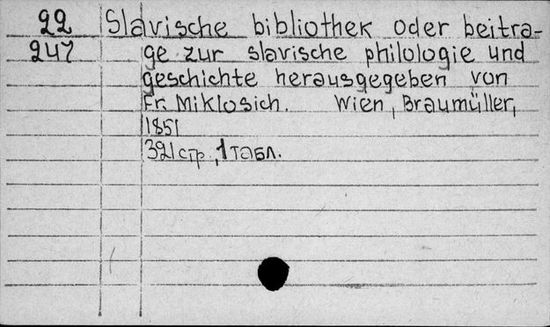 22 Slavische bibliothek oder beitra-
247 ge zur slavische philologie und
geschichte herausgegeben von
Fr. Miklosich. Wien, Braumüller,
1851
321 стр., 1 табл.